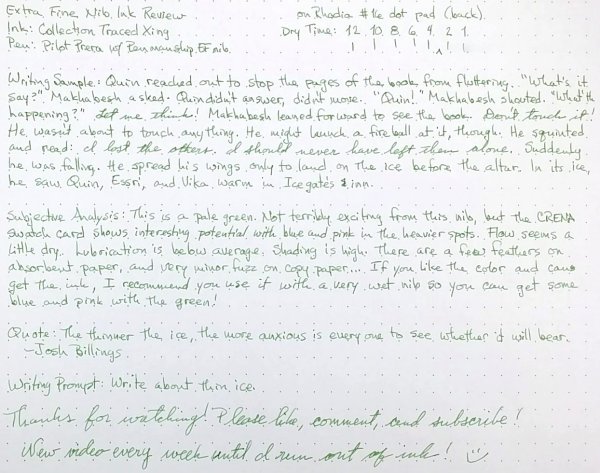 Extra Fine Nib Ink Review on Rhodia #16 dot pad (back).
Ink: Collection Traced Xing Dry Time: 12 10 8 6 4 2 1
Pen: Pilot Prera w/ Penmanship EF nib.
Writing Sample: Quin reached out to stop the pages of the book from fluttering. "What's it
say?" Makhabesh asked. Quin didn't answer, didn't move. "Quin!" Makhabesh shouted. "What's
happening?" Let me think! Makhabesh leaned forward to see the book. Don't touch it!
He wasn't about to touch anything. He might launch a fireball at it, though. He squinted
and read: I lost the others. I should never have left them alone. Suddenly
he was falling. He spread his wings only to land on the ice before the altar. In its ice,
he saw Quin, Essri, and Vika warm in Icegate's inn.
Subjective Analysis: This is a pale green. Not terribly exciting from this nib, but the CRENA
swatch card shows interesting potential with blue and pink in the heavier spots. Flow seems a
little dry. Lubrication is below average. Shading is high. There are a few feathers on
absorbent paper, and very minor fuzz on copy paper.... If you like the color and can
get the ink, I recommend you use it with a very wet nib so you can get some
blue and pink with the green!
Quote: The thinner the ice, the more anxious is every one to see whether it will bear.
- Josh Billings
Writing Prompt: Write about thin ice.
Thanks for watching! Please like, comment, and subscribe!
New video every week until I run out of ink!